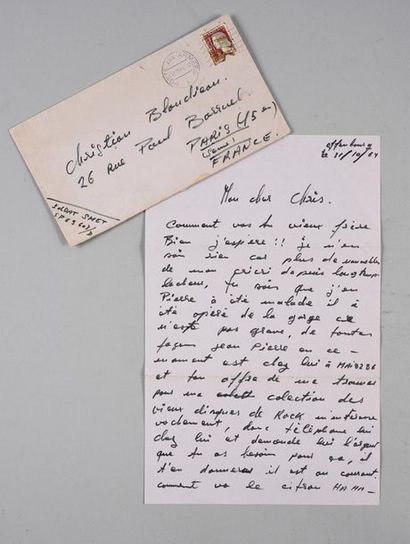 Christian Blondieau.
26 rue Paul Barruel
PARIS (15e)
Seine
FRANCE.
SOLDAT SMET
SP 69
Offenbourg
le 31/10/64
Mon cher Chris.
Comment vas tu vieux frère
Bien j'espère!! je n'en
sais rien car plus de nouvelles
de mon cricri depuis longtemps
tu sais que j'en
Pierre à été malade il à
été opéré de la gorge ce
n'est pas grave, de toutes
façons jean Pierre en ce -
moment est chez lui à
et ton offre de me trouver
pour ma colection des
vieux disques de Rock m'intéresse
vachement, donc téléphone lui
chez lui et demande lui l'argent
que tu as besoin pour ça, il
t'en donneras il est au courant.
comment va le citron HA HA -